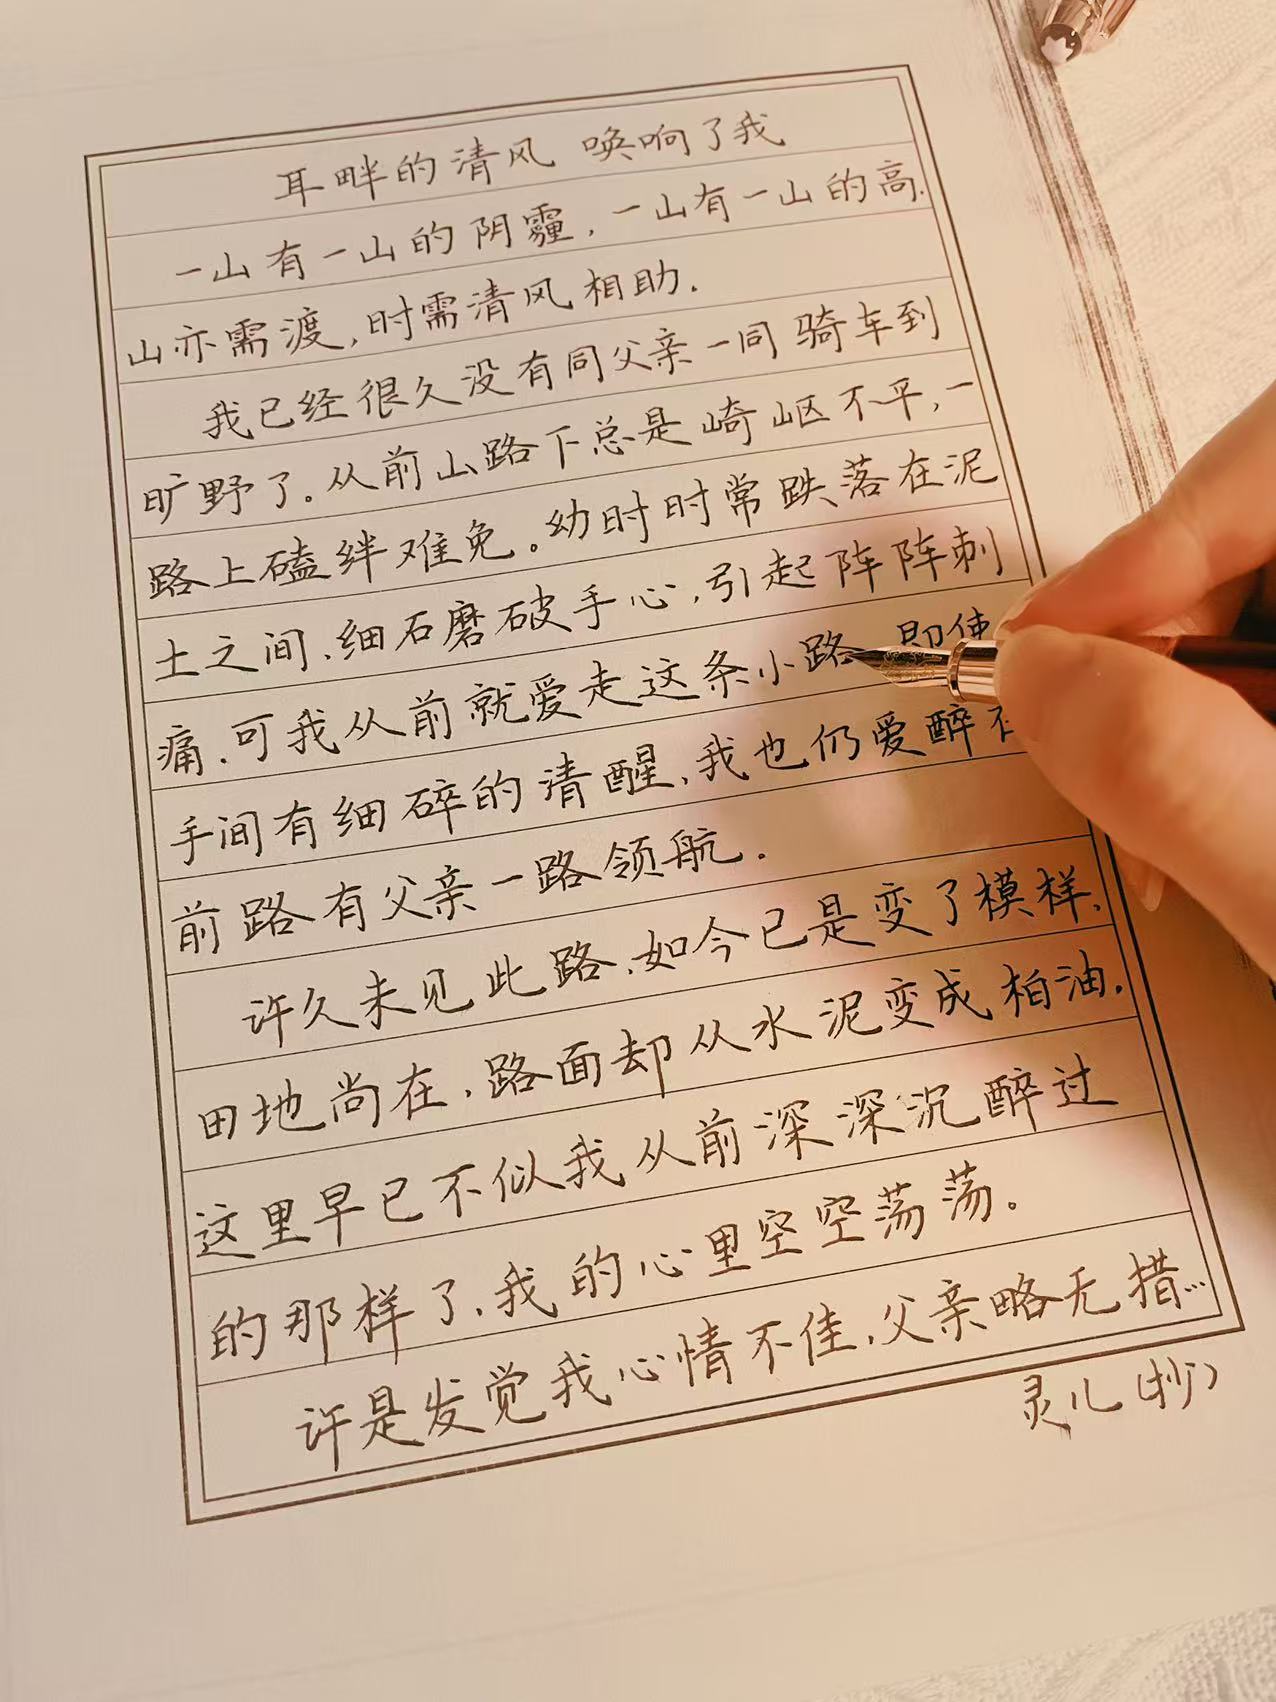 耳畔的清风 唤响了我
一山有一山的阴霾，一山有一山的高.
山亦需渡，时需清风相助.
我已经很久没有同父亲一同骑车到
旷野了。从前山路下总是崎岖不平，一
路上磕绊难免。幼时时常跌落在泥
土之间、细石磨破手心，引起阵阵刺
痛.可我从前就爱走这条小路 即使
手间有细碎的清醒、我也仍爱醉
前路有父亲一路领航.
许久未见此路、如今已是变了模样、
田地尚在，路面却从水泥变成柏油.
这里早已不似我从前深深沉醉过
的那样了、我的心里空空荡荡。
许是发觉我心情不佳，父亲略无措…
灵儿（抄）